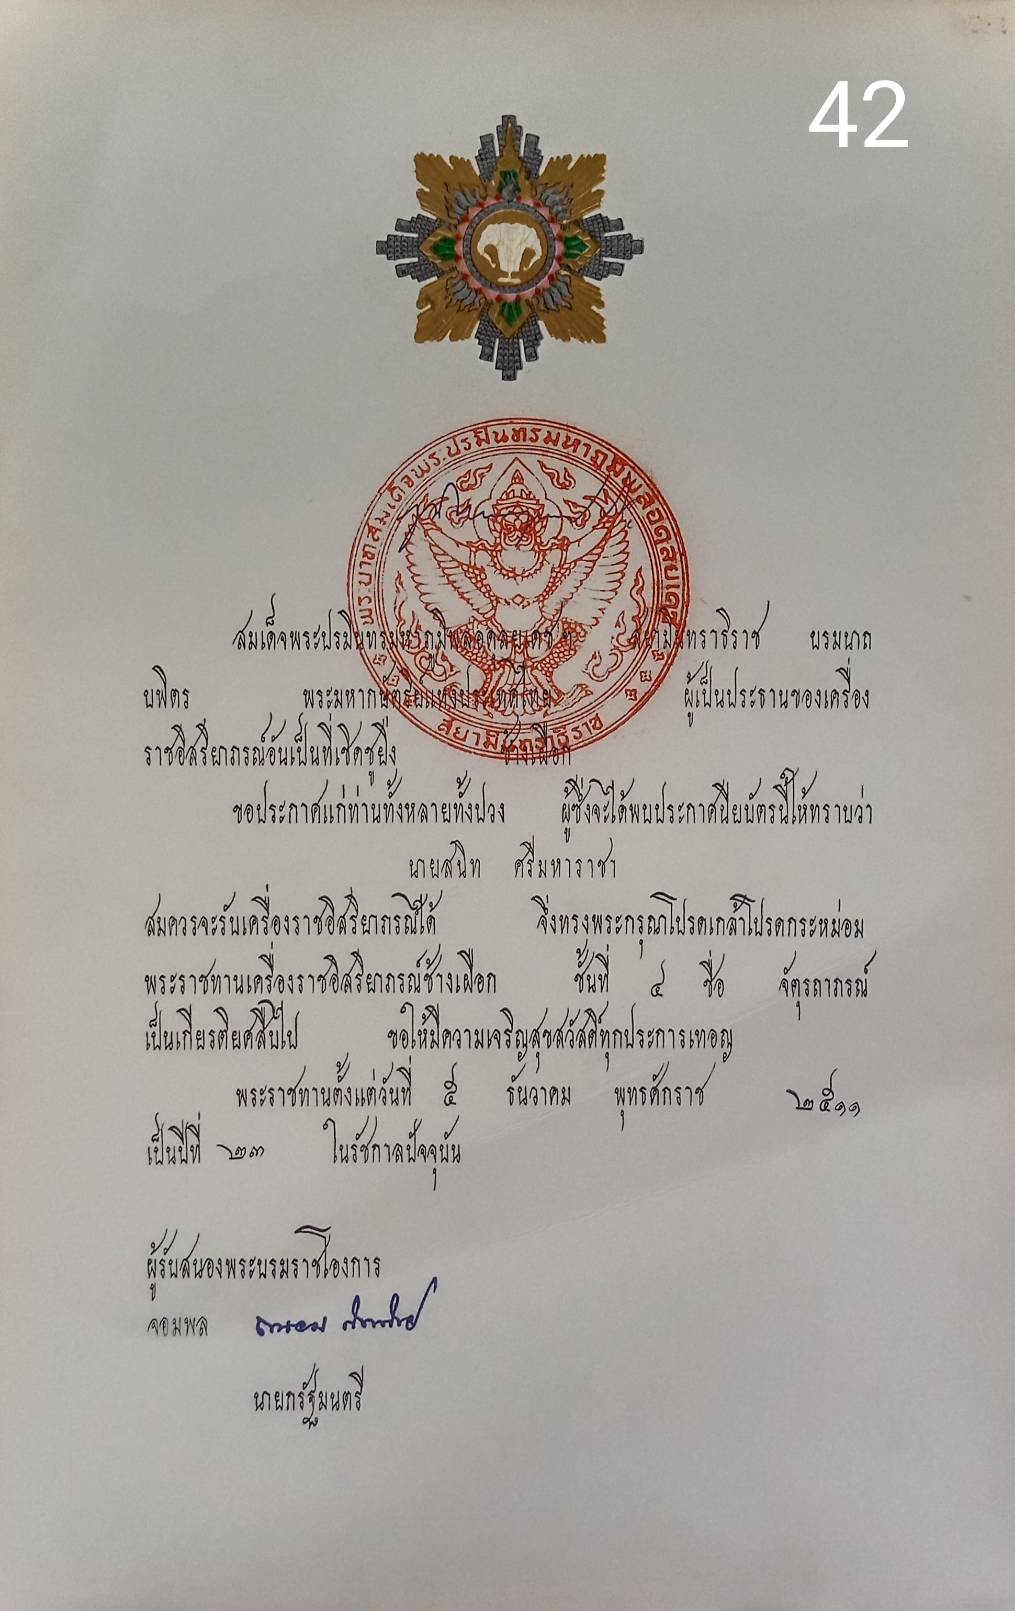 42
พระบาทสมเด็จพระปรมินทรมหาภูมิพลอดุลยเดช
สยามินทราธิราช
สมเด็จพระปรมินทรมหาภูมิพลอดุลยเดช ฯ สยามินทราธิราช บรมนาถ
บพิตร พระมหากษัตริย์แห่งประเทศไทย ผู้เป็นประธานของเครื่อง
ราชอิสริยาภรณ์อันเป็นที่เชิดชูยิ่ง ช้างเผือก
ขอประกาศแก่ท่านทั้งหลายทั้งปวง ผู้ซึ่งจะได้พบประกาศนียบัตรนี้ให้ทราบว่า
นายสนิท ศรีมหาราชา
สมควรจะรับเครื่องราชอิสริยาภรณ์ได้ จึงทรงพระกรุณาโปรดเกล้าโปรดกระหม่อม
พระราชทานเครื่องราชอิสริยาภรณ์ช้างเผือก ชั้นที่ ๔ ชื่อ จัตุรถาภรณ์
เป็นเกียรติยศสืบไป ขอให้มีความเจริญสุขสวัสดิ์ทุกประการเทอญ
พระราชทานตั้งแต่วันที่ ๕ ธันวาคม พุทธศักราช ๒๕๑๑
เป็นปีที่ ๒๓ ในรัชกาลปัจจุบัน
ผู้รับสนองพระบรมราชโองการ
จอมพล ถนอม กิตติขจร
นายกรัฐมนตรี